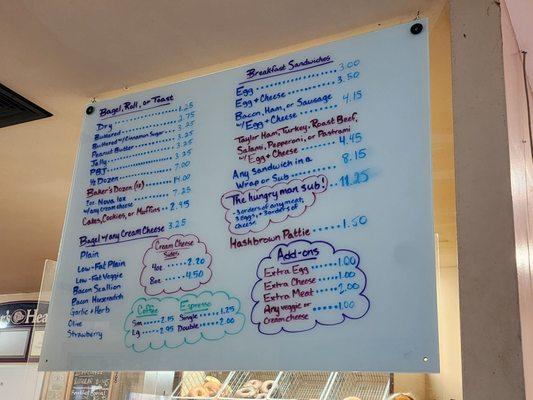 Bagel, Roll, or Toast
Dry 1.25
Buttered 2.75
Buttered w/ Cinnamon Sugar 3.25
Peanut Butter 3.25
Jelly 3.25
PBJ 3.25
½ Dozen 7.00
Baker's Dozen (13) 14.00
2oz. Nova lox
w/ any cream cheese 7.25
Cakes, Cookies, or Muffins 2.95
Bagel w/ any Cream Cheese 3.25
Plain
Low-Fat Plain
Low-Fat Veggie
Bacon Scallion
Bacon Horseradish
Garlic & Herb
Olive
Strawberry
Cream Cheese
Sides
4oz 2.20
8oz 4.50
Coffee
Sm 2.15
Lg 2.95
Espresso
Single 1.25
Double 2.00
Breakfast Sandwiches
Egg 3.00
Egg & Cheese 3.50
Bacon, Ham, or Sausage
w/ Egg & Cheese 4.15
Taylor Ham, Turkey, Roast Beef,
Salami, Pepperoni, or Pastrami
w/ Egg & Cheese 4.45
Any Sandwich in a
Wrap or Sub 8.15
The hungry man sub! 11.25
- 3 orders of any meat,
3 Eggs, & 3 orders of
Cheese
Hashbrown Pattie 1.50
Add-ons
Extra Egg 1.00
Extra Cheese 1.00
Extra Meat 2.00
Any veggie or
cream cheese 1.00